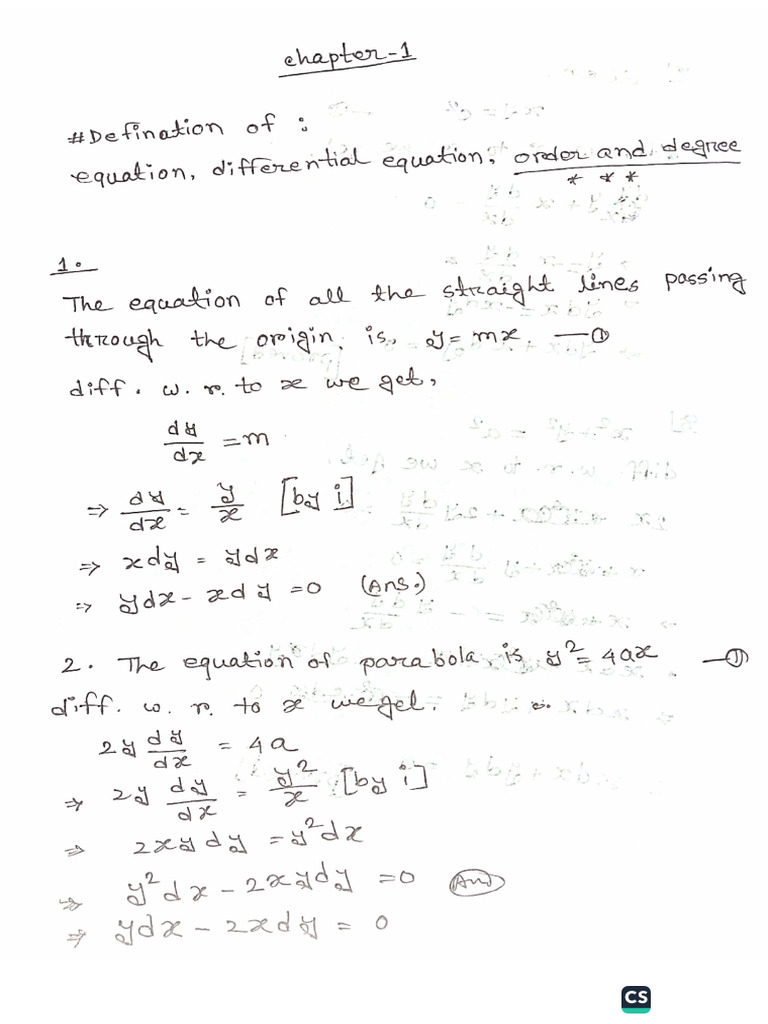 chapter-1
#Defination of :
equation, differential equation, order and degree
* * *
1.
The equation of all the straight lines passing
through the origin. is, y = mx. —①
diff. w. r. to x we get,
dy/dx = m
⇒ dy/dx = y/x [by i]
⇒ xdy = ydx
⇒ ydx - xdy = 0 (Ans.)
2. The equation of parabola is y² = 4ax —①
diff. w. r. to x we get.
2y dy/dx = 4a
⇒ 2y dy/dx = y²/x [by i]
⇒ 2xydy = y²dx
⇒ y²dx - 2xydy = 0 (Ans)
⇒ ydx - 2xdy = 0
CS